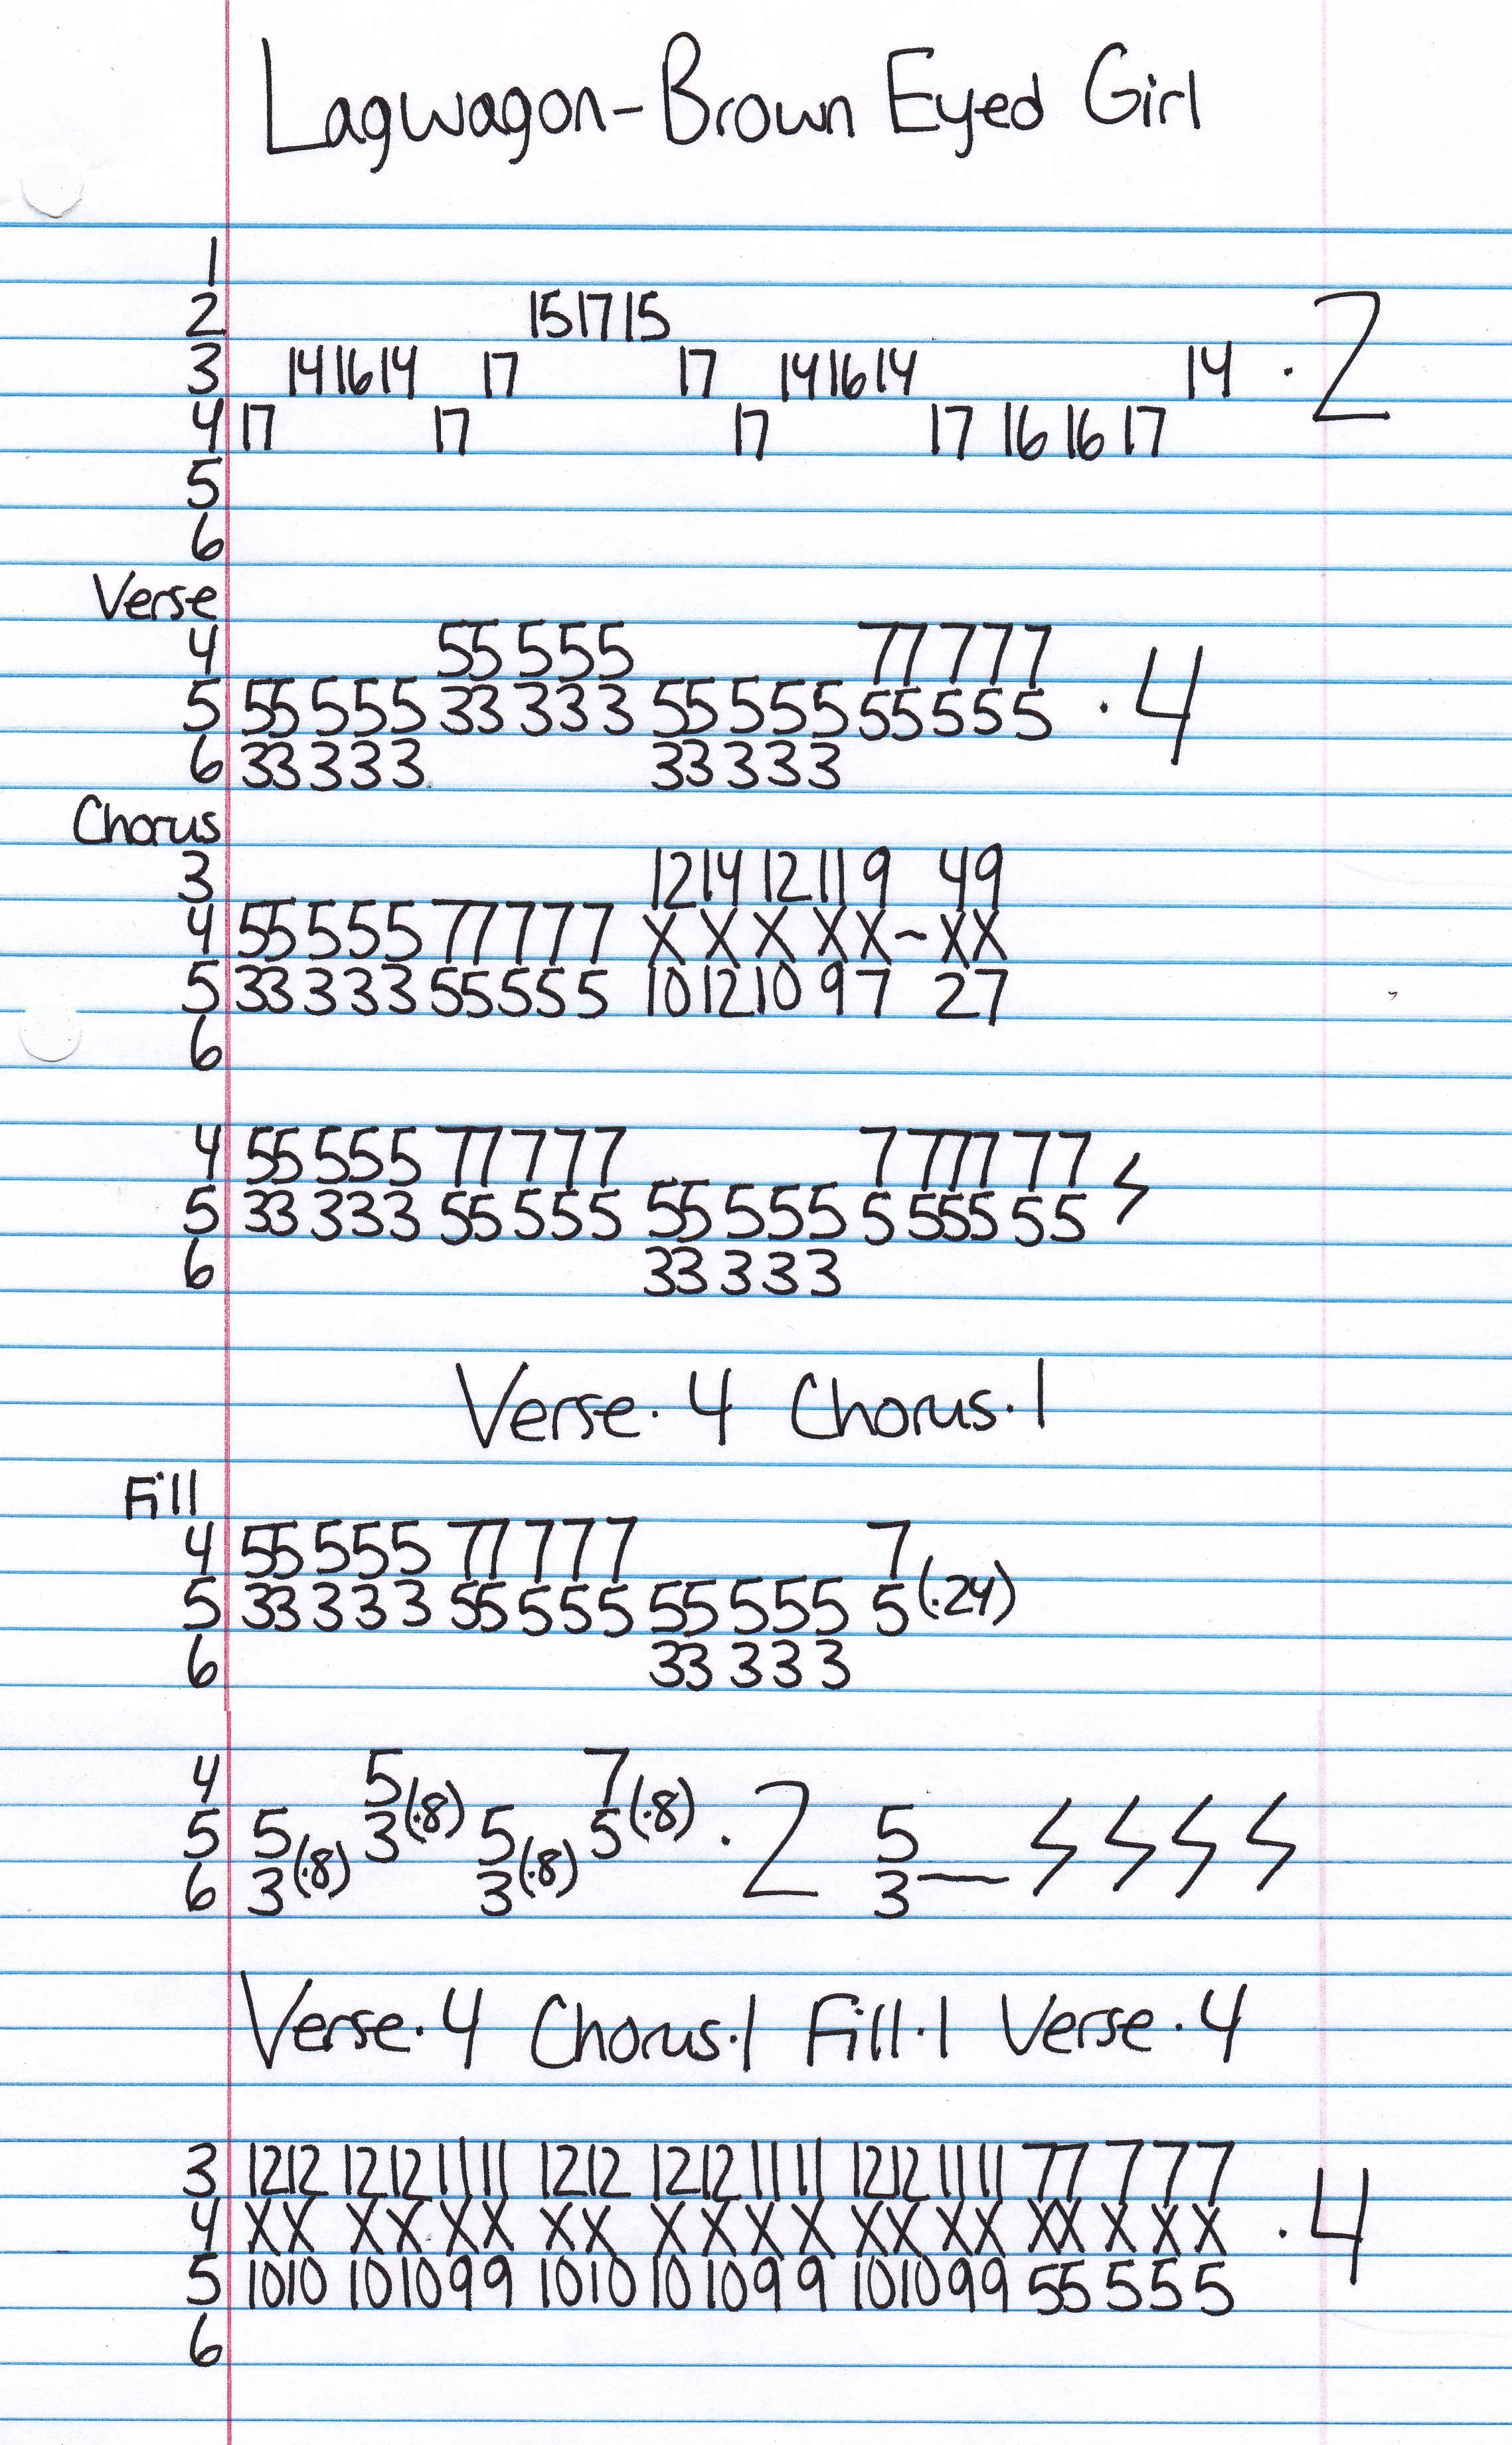 Lagwagon-Brown Eyed Girl
1
2 15 17 15
3 14 16 14 17 17 14 16 14 14 · 2
4 17 17 17 17 16 16 17
5
6
Verse
4 55 555 77 777
5 55 555 33 333 55 555 55 555 · 4
6 33 333 33 333
Chorus
3 12 14 12 11 9 4 9
4 55 555 77 777 X X X X X ~ X X
5 33 333 55 555 10 12 10 9 7 2 7
6
4 55 555 77 777 7 777 77
5 33 333 55 555 55 555 5 555 55
6 33 333
Verse·4 Chorus·1
Fill
4 55 555 77 777 7
5 33 333 55 555 55 555 5 (·24)
6 33 333
4 5 (·8) 7 (·8)
5 5 3 5 5 · 2 5
6 3 (·8) 3 (·8) 3
Verse·4 Chorus·1 Fill·1 Verse·4
3 12 12 12 12 11 11 12 12 12 12 11 11 12 12 11 11 77 777
4 X X X X X X X X X X X X X X X X XX X X X · 4
5 10 10 10 10 9 9 10 10 10 10 9 9 10 10 9 9 55 555
6